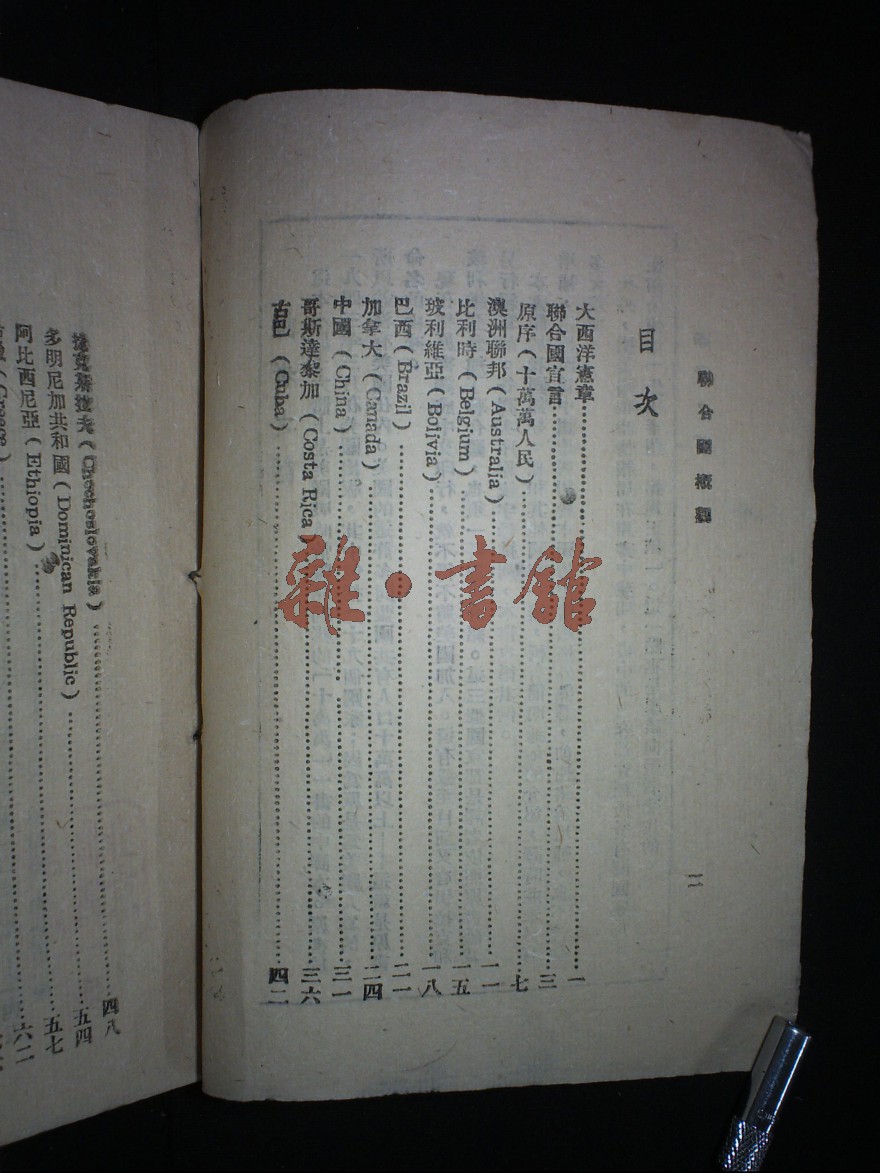 聯合國概觀
二
目次
大西洋憲章……一
聯合國宣言……三
原序(十萬萬人民)……七
澳洲聯邦(Australia)……一一
比利時(Belgium)……一五
玻利維亞(Bolivia)……一八
巴西(Brazil)……二一
加拿大(Canada)……二四
中國(China)……三一
哥斯達黎加(Costa Rica)……三六
古巴(Cuba)……四二
捷克斯拉夫(Chechoslovakia)……四八
多明尼加共和國(Dominican Republic)……五四
阿比西尼亞(Ethiopia)……五七
(Greece)……六二
雜·書館